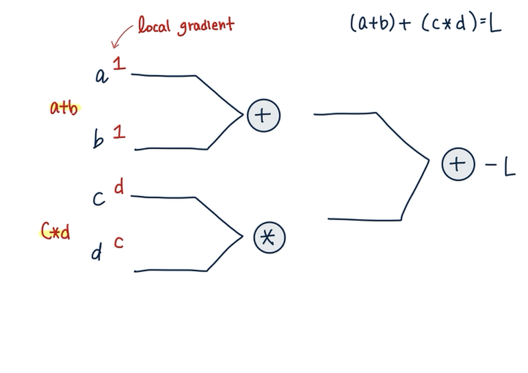 local gradient
(a+b) + (c*d) = L
a 1
a+b
+
b 1
+ - L
c d
C*d
*
d c